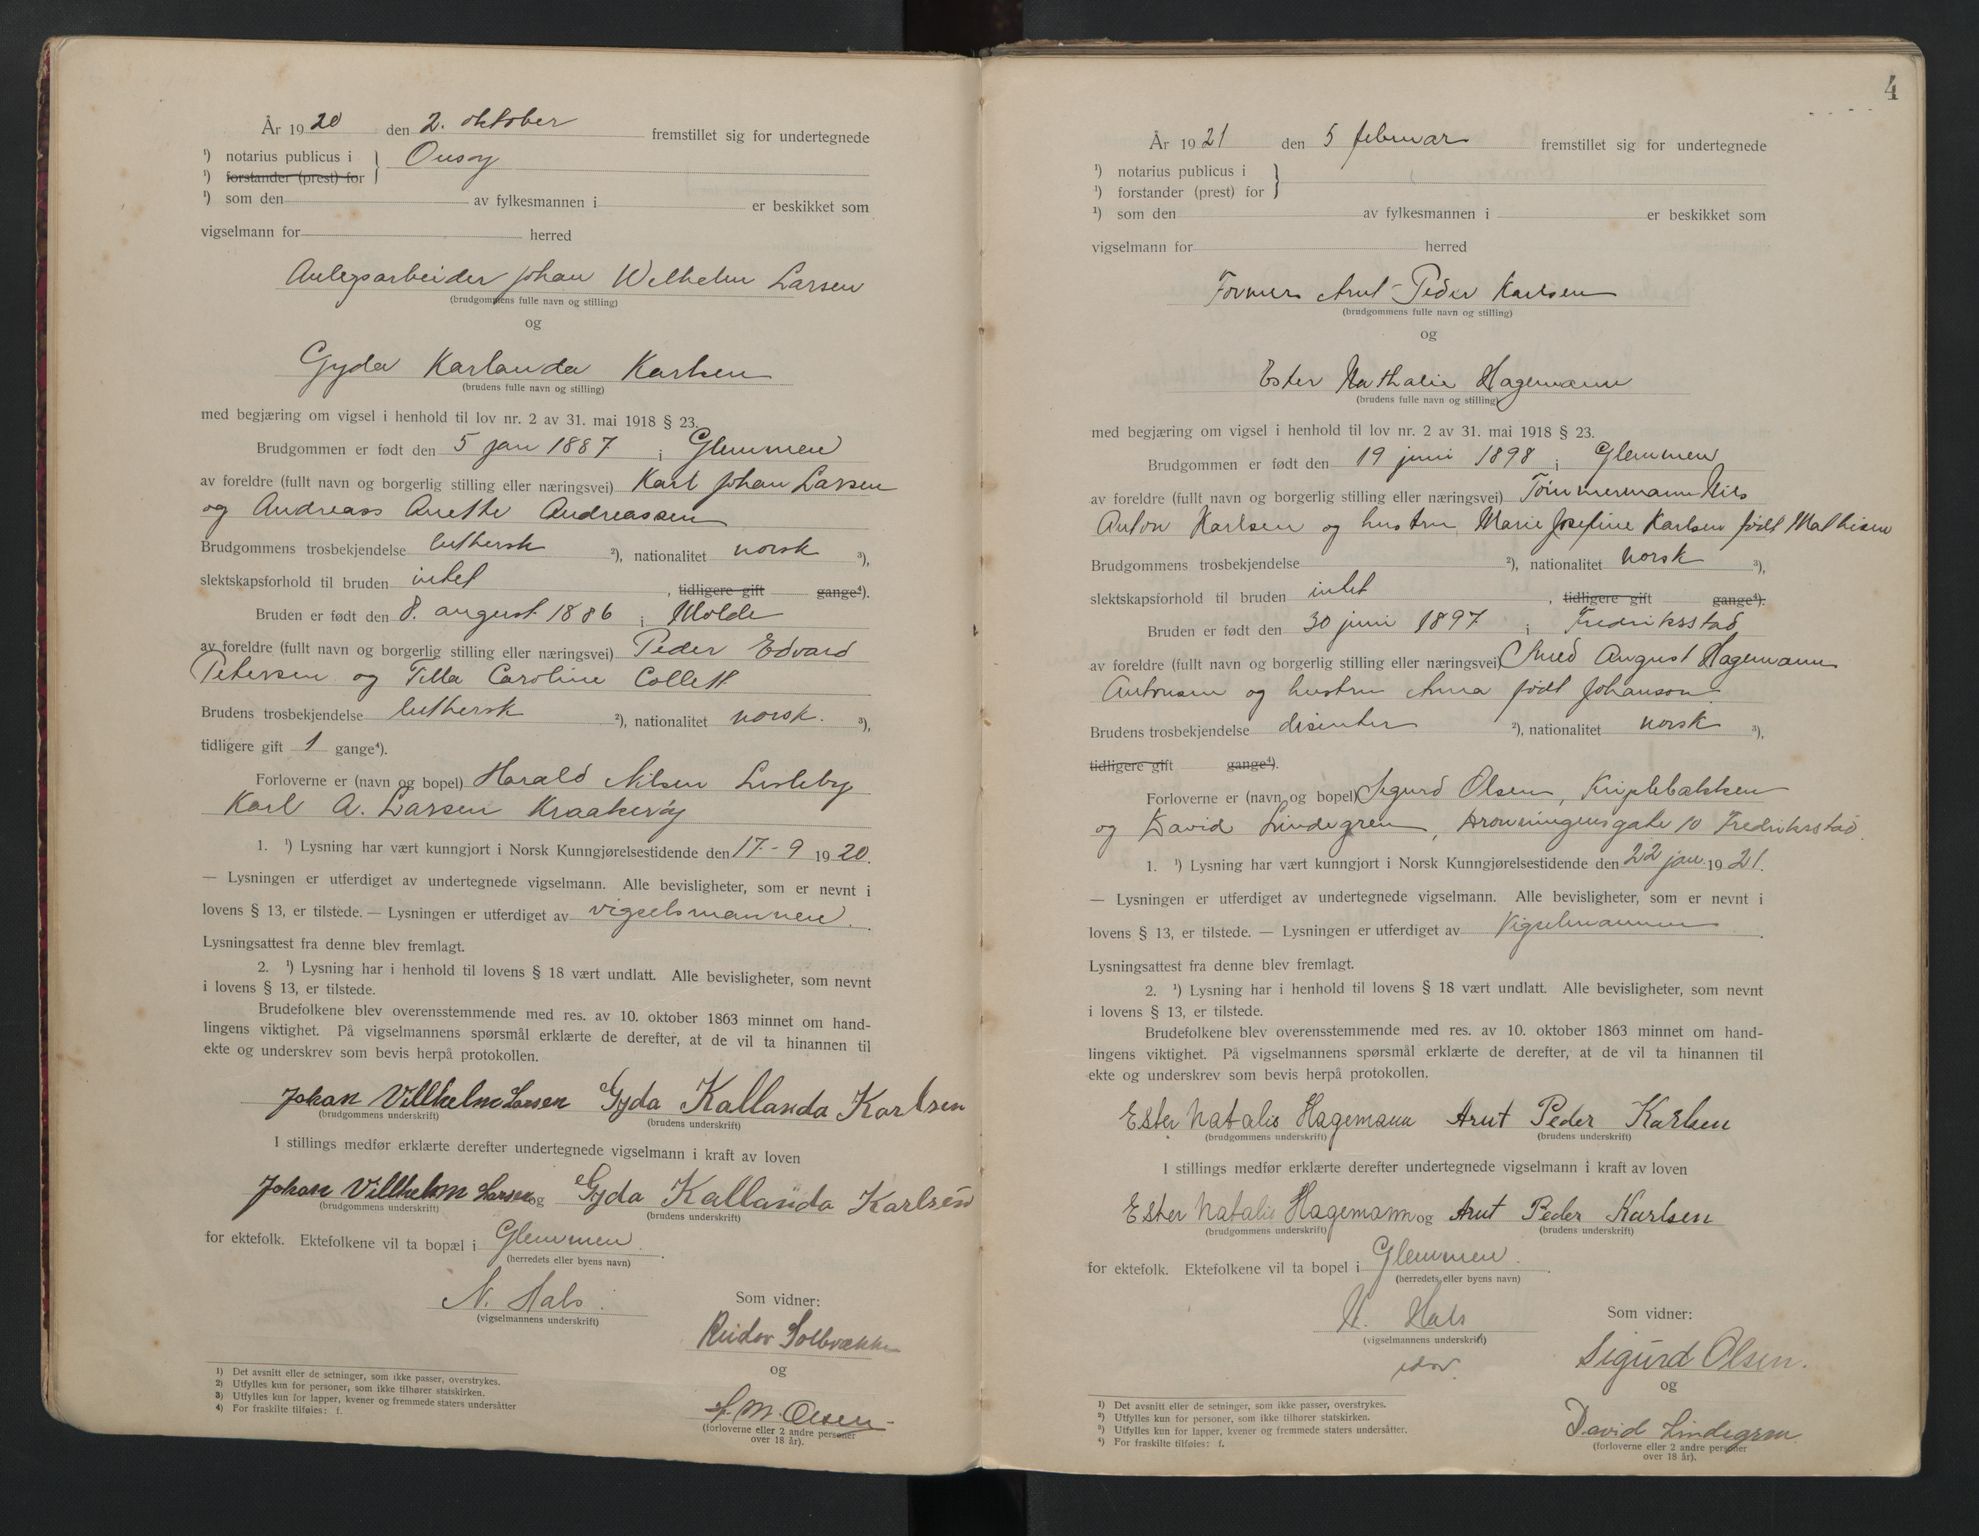 År 1920 den 2. oktober fremstillet sig for undertegnede
¹) notarius publicus i } Onsøy
¹) forstander (prest) for
¹) som den av fylkesmannen i er beskikket som
vigselmann for herred
Anlegsarbeider Johan Wilhelm Larsen
(brudgommens fulle navn og stilling)
og
Gyda Karlanda Karlsen
(brudens fulle navn og stilling)
med begjæring om vigsel i henhold til lov nr. 2 av 31. mai 1918 § 23.
Brudgommen er født den 5 jan 1887 i Glemmen
av foreldre (fullt navn og borgerlig stilling eller næringsvei) Karl Johan Larsen
og Andreass Anette Andreassen
Brudgommens trosbekjendelse luthersk ²), nationalitet norsk ³),
slektskapsforhold til bruden intet , tidligere gift gange⁴).
Bruden er født den 8. august 1886 i Molde
av foreldre (fullt navn og borgerlig stilling eller næringsvei) Peder Edvard
Petersen og Tilla Caroline Collett
Brudens trosbekjendelse luthersk ²), nationalitet norsk. ³),
tidligere gift 1 gange⁴).
Forloverne er (navn og bopel) Harald Nilsen Lisleby
Karl A. Larsen Kraakerøy
1. ¹) Lysning har vært kunngjort i Norsk Kunngjørelsestidende den 17-9 1920.
— Lysningen er utferdiget av undertegnede vigselmann. Alle bevisligheter, som er nevnt i
lovens § 13, er tilstede. — Lysningen er utferdiget av vigselsmannen.
Lysningsattest fra denne blev fremlagt.
2. ¹) Lysning har i henhold til lovens § 18 vært undlatt. Alle bevisligheter, som nevnt
i lovens § 13, er tilstede.
Brudefolkene blev overensstemmende med res. av 10. oktober 1863 minnet om hand-
lingens viktighet. På vigselmannens spørsmål erklærte de derefter, at de vil ta hinannen til
ekte og underskrev som bevis herpå protokollen.
Johan Villhelm Larsen Gyda Kallanda Karlsen
(brudgommens underskrift) (brudens underskrift)
I stillings medfør erklærte derefter undertegnede vigselmann i kraft av loven
Johan Villhelm Larsen og Gyda Kallanda Karlsen
(brudgommens underskrift) (brudens underskrift)
for ektefolk. Ektefolkene vil ta bopæl i Glemmen.
(herredets eller byens navn)
N. Hals.
(vigselmannens underskrift)
Som vidner:
Reidar Solbrække
og
S. M. Olsen
(forloverne eller 2 andre personer
over 18 år).
1) Det avsnitt eller de setninger, som ikke passer, overstrykes.
2) Utfylles kun for personer, som ikke tilhører statskirken.
3) Utfylles kun for lapper, kvener og fremmede staters undersåtter
4) For fraskilte tilføies: f.
4
År 1921 den 5 februar fremstillet sig for undertegnede
¹) notarius publicus i }
¹) forstander (prest) for
¹) som den av fylkesmannen i er beskikket som
vigselmann for herred
Former Arnt Peder Karlsen
(brudgommens fulle navn og stilling)
og
Ester Nathalie Hagemann
(brudens fulle navn og stilling)
med begjæring om vigsel i henhold til lov nr. 2 av 31. mai 1918 § 23.
Brudgommen er født den 19 juni 1898 i Glemmen
av foreldre (fullt navn og borgerlig stilling eller næringsvei) Tömmermann Nils
Anton Karlsen og hustru Marie Josefine Karlsen født Mathisen
Brudgommens trosbekjendelse ²), nationalitet norsk ³),
slektskapsforhold til bruden intet , tidligere gift gange⁴).
Bruden er født den 30 juni 1897 i Fredriksstad
av foreldre (fullt navn og borgerlig stilling eller næringsvei) Smed August Hagemann
Antonsen og hustru Anna født Johanson
Brudens trosbekjendelse disenter ²), nationalitet norsk ³),
tidligere gift gange⁴).
Forloverne er (navn og bopel) Sigurd Olsen, Kniplebakken
og David Lindegren, Dronningensgate 10 Fredriksstad.
1. ¹) Lysning har vært kunngjort i Norsk Kunngjørelsestidende den 22 jan. 1921.
— Lysningen er utferdiget av undertegnede vigselmann. Alle bevisligheter, som er nevnt i
lovens § 13, er tilstede. — Lysningen er utferdiget av Vigselmannen.
Lysningsattest fra denne blev fremlagt.
2. ¹) Lysning har i henhold til lovens § 18 vært undlatt. Alle bevisligheter, som nevnt
i lovens § 13, er tilstede.
Brudefolkene blev overensstemmende med res. av 10. oktober 1863 minnet om hand-
lingens viktighet. På vigselmannens spørsmål erklærte de derefter, at de vil ta hinannen til
ekte og underskrev som bevis herpå protokollen.
Ester Natalie Hagemann Arnt Peder Karlsen
(brudgommens underskrift) (brudens underskrift)
I stillings medfør erklærte derefter undertegnede vigselmann i kraft av loven
Ester Natalie Hagemann og Arnt Peder Karlsen
(brudgommens underskrift) (brudens underskrift)
for ektefolk. Ektefolkene vil ta bopel i Glemmen.
(herredets eller byens navn)
N. Hals
(vigselmannens underskrift)
Som vidner:
Sigurd Olsen.
og
David Lindegren
(forloverne eller 2 andre personer
over 18 år).
¹) Det avsnitt eller de setninger, som ikke passer, overstrykes.
²) Utfylles kun for personer, som ikke tilhører statskirken.
³) Utfylles kun for lapper, kvener og fremmede staters undersåtter.
⁴) For fraskilte tilføies: f.